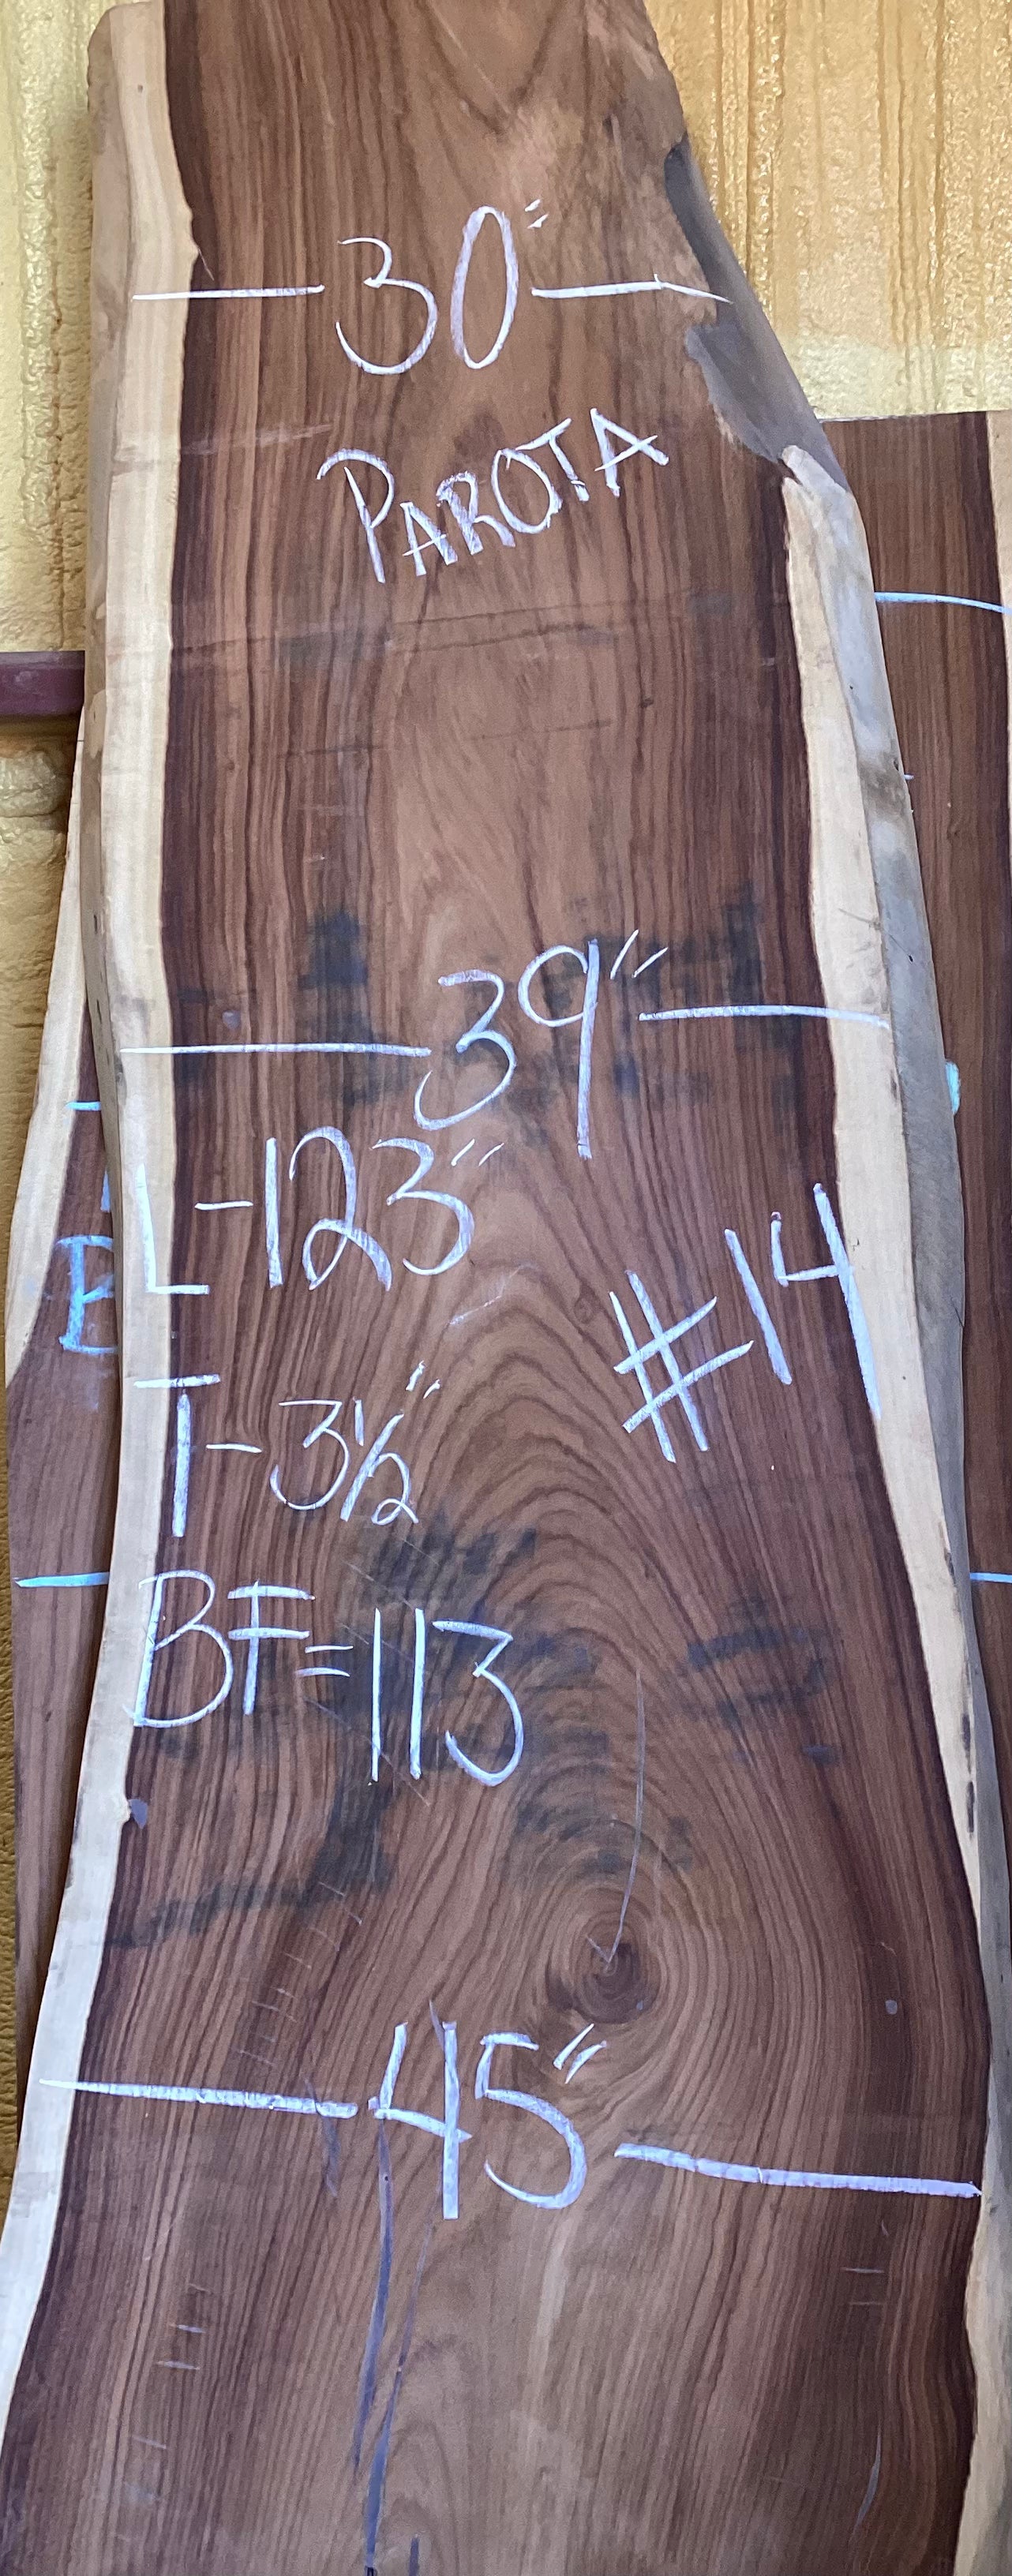 30"
PAROTA
39"
L-123"
#14
T-3½"
BF=113
45"